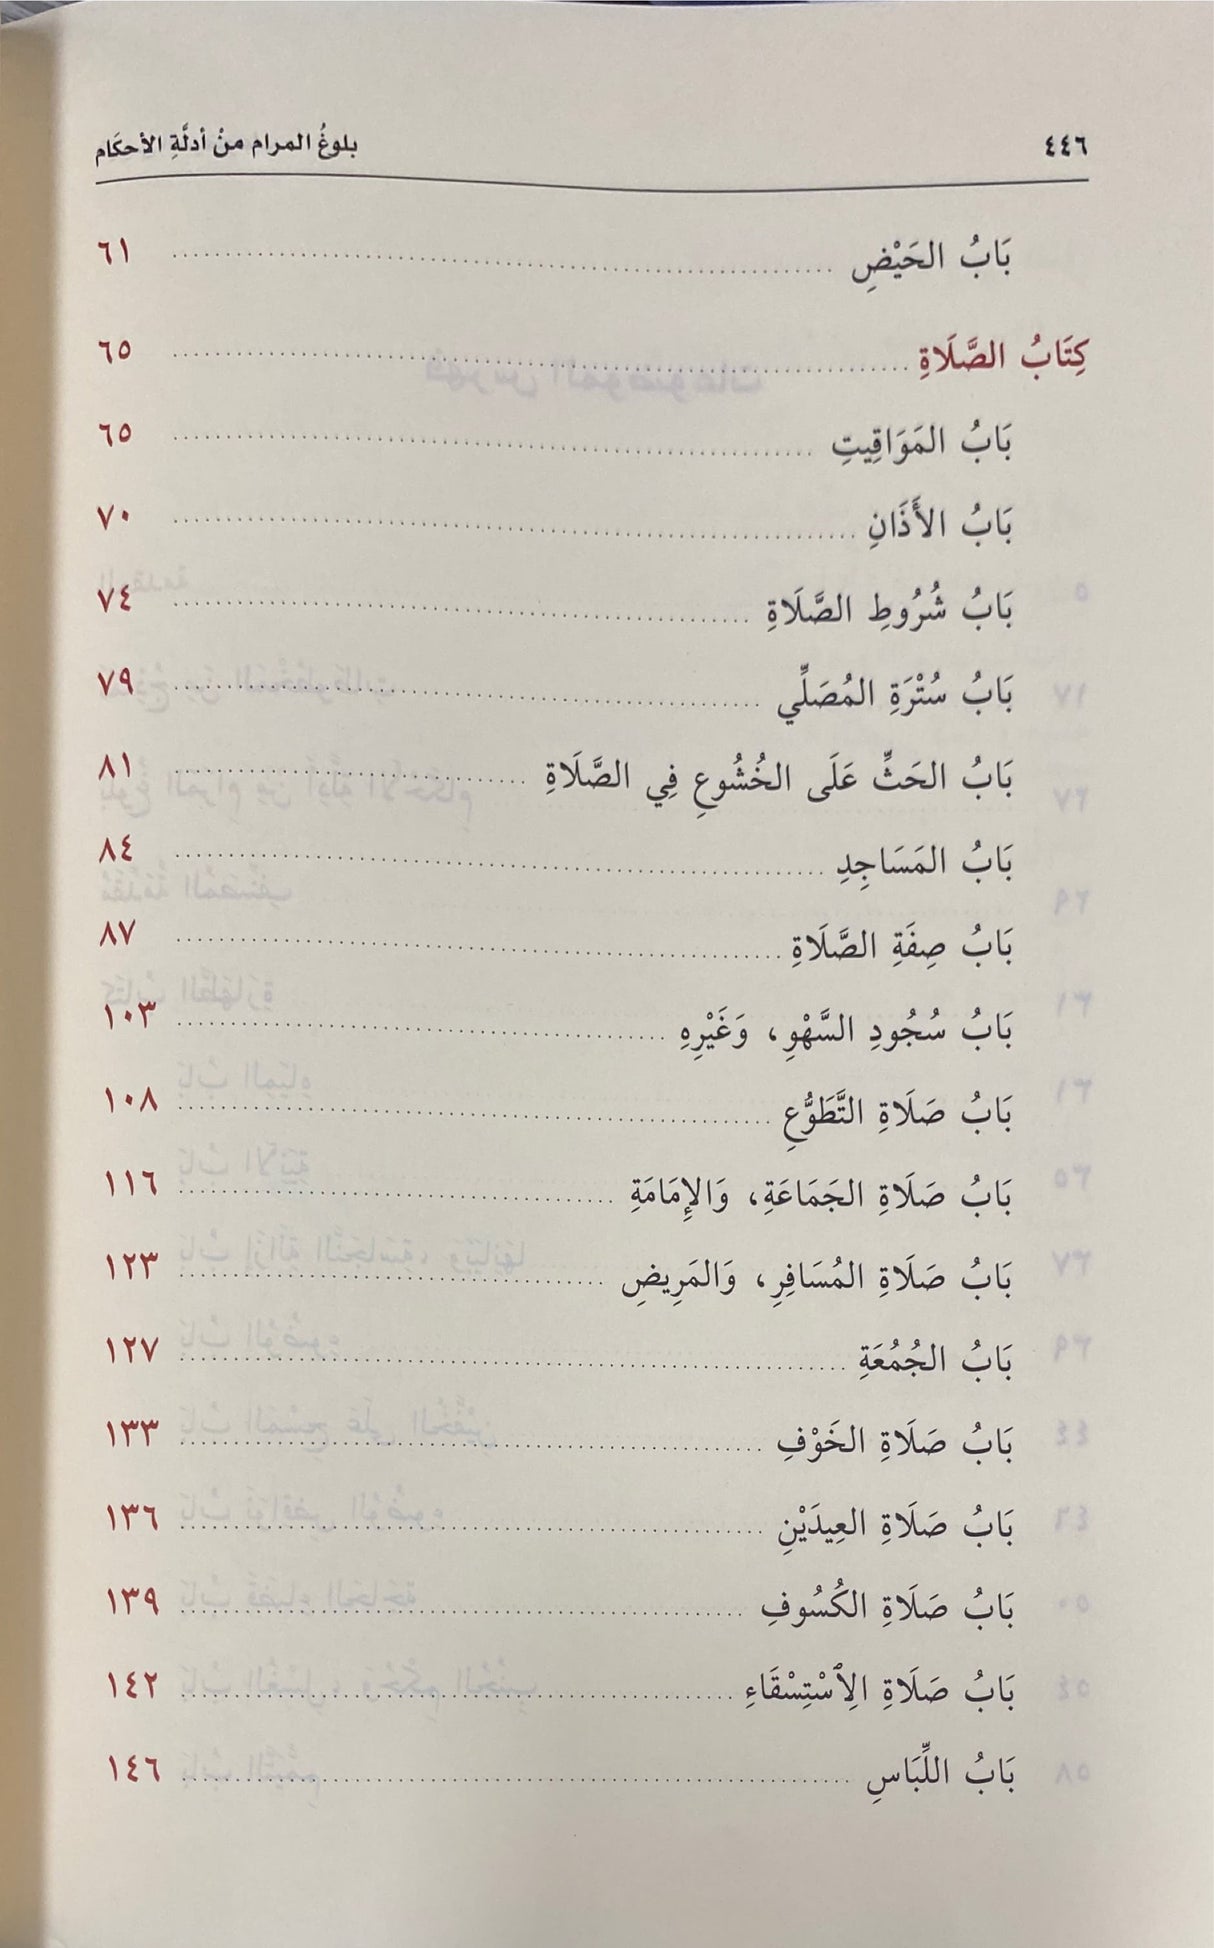 ٤٤٦ بلوغُ المرام منْ أدلَّةِ الأحكَام
بَابُ الحَيْضِ ٦١
كِتَابُ الصَّلَاةِ ٦٥
بَابُ المَوَاقِيتِ ٦٥
بَابُ الأَذَانِ ٧٠
بَابُ شُرُوطِ الصَّلَاةِ ٧٤
بَابُ سُتْرَةِ المُصَلِّي ٧٩
بَابُ الحَثِّ عَلَى الخُشُوعِ فِي الصَّلَاةِ ٨١
بَابُ المَسَاجِدِ ٨٤
بَابُ صِفَةِ الصَّلَاةِ ٨٧
بَابُ سُجُودِ السَّهْوِ، وَغَيْرِهِ ١٠٣
بَابُ صَلَاةِ التَّطَوُّعِ ١٠٨
بَابُ صَلَاةِ الجَمَاعَةِ، وَالإِمَامَةِ ١١٦
بَابُ صَلَاةِ المُسَافِرِ، وَالمَرِيضِ ١٢٣
بَابُ الجُمُعَةِ ١٢٧
بَابُ صَلَاةِ الخَوْفِ ١٣٣
بَابُ صَلَاةِ العِيدَيْنِ ١٣٦
بَابُ صَلَاةِ الكُسُوفِ ١٣٩
بَابُ صَلَاةِ الِاسْتِسْقَاءِ ١٤٢
بَابُ اللِّبَاسِ ١٤٦